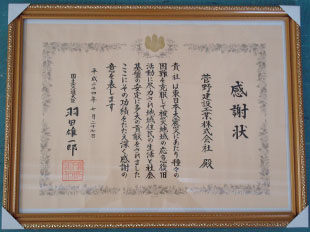 感謝状
菅野建設工業株式会社 殿
貴社は東日本大震災にあたり種々の
困難を克服して被災地域の応急復旧
活動に尽力され地域住民の生活と社会
基盤の安定に多大の貢献をされました
ここにその功績をたたえ深く感謝の
意を表します
平成二十四年七月二十七日
国土交通大臣
羽田雄一郎